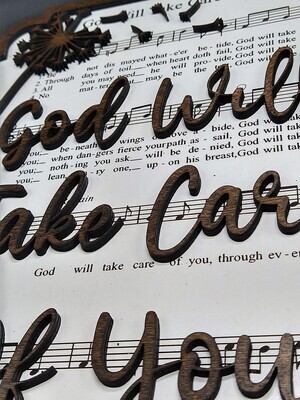 God Will Take C
1. Be not dis mayed what-e'er be - tide, God will take
2. Through days of toil when heart doth fail, God will take
3. All you may need he will pro - vide, God will take
No mat - ter what may be the
God Will
you; be - neath wings of love a - bide, God will take
you; when dan - gers fierce your path as - sail, God will take
you; noth - ing you ask will be de - nied, God will take
you; lean, ry one, up - on his breast, God will take
Take Car
ain
God will take care of you, through ev - er
Of You